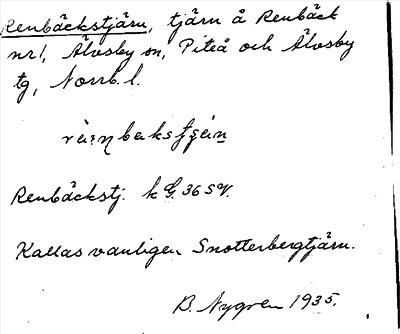 Renbäckstjärn, tjärn å Renbäck
nr 1, Älvsby sn, Piteå och Älvsby
tg, Norrb. l.
Renbäckstj. k G. 36 SV.
Kallas vanligen Snotterbergtjärn.
B. Nygren 1935.